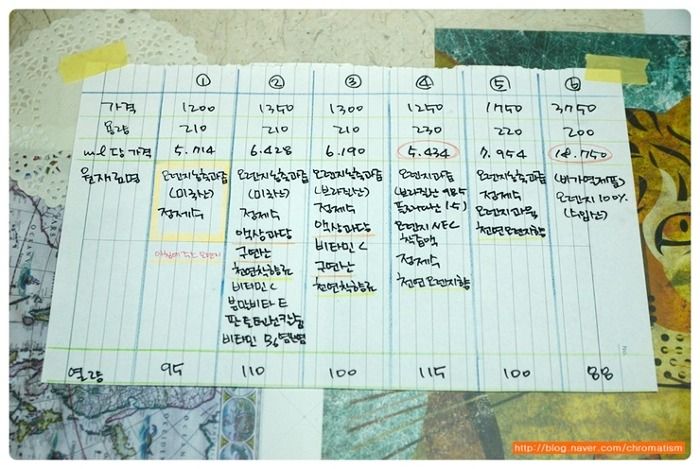 ① ② ③ ④ ⑤ ⑥
가격 1200 1350 1300 1250 1750 3750
용량 210 210 210 230 220 200
ml당 가격 5.714 6.428 6.190 5.434 7.954 18.750
원재료명 오렌지농축과즙 오렌지농축과즙 오렌지농축과즙 오렌지과즙 오렌지농축과즙 (비가열제품)
(미국산) (미국산) (브라질산) (브라질산 98.5 정제수 오렌지 100%
정제수 정제수 정제수 플로리다산 1.5) 오렌지과육 (수입산)
액상과당 액상과당 오렌지 NFC 천연오렌지향
구연산 비타민 C 착즙액
천연착향료 구연산 정제수
비타민 C 천연착향료 천연오렌지향
분말비타 E
판토텐산칼슘
비타민 B6염산염
아침에 주스 오렌지
열량 95 110 100 115 100 88
http://blog.naver.com/chromatism